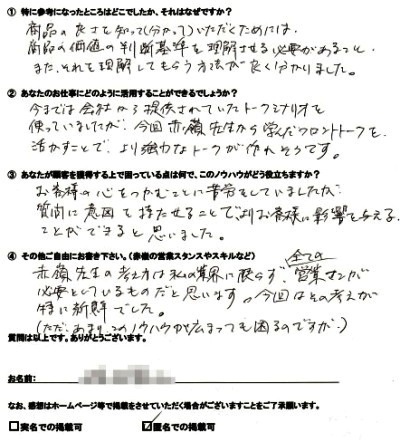 ① 特に参考になったところはどこでしたか、それはなぜですか?
商品の良さを知って(分かって)いただくためには、
商品の価値の判断基準を理解させる必要があること。
また、それを理解してもらう方法が良く分かりました。
② あなたのお仕事にどのように活用することができるでしょうか?
今までは会社から提供されていたトークシナリオを
使っていましたが、今回赤嶺先生から学んだフロントトークを、
活かすことで、より強力なトークが作れそうです。
③ あなたが顧客を獲得する上で困っている点は何で、このノウハウがどう役立ちますか?
お客様の心をつかむことに苦労をしていましたが、
質問に意図を持たせることでよりお客様に影響を与える
ことができると思いました。
④ その他ご自由にお書き下さい。(赤嶺の営業スタンスやスキルなど)
赤嶺先生の考え方は私の業界に限らず、全ての営業マンが
必要としているものだと思います。今回はその考えが
特に新鮮でした。
(ただ、あまりこのノウハウが広まっても困るのですが。)
質問は以上です。ありがとうございます。
お名前:
なお、感想はホームページ等で掲載をさせていただく場合がございますことをご了承願います。
□実名での掲載可 ☑匿名での掲載可